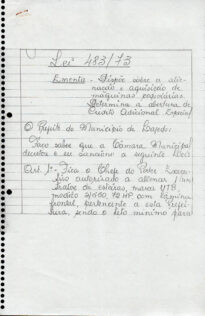 Lei 483/73
Ementa - Dispõe sobre a alie-
nação e aquisição de
máquinas rodoviárias.
Determina a abertura de
Crédito Adicional Especial
O Prefeito do Município de Bofete:
Faço saber que a Câmara Municipal
decretou e eu sanciono a seguinte Lei:
Art. 1º - Fica o Chefe do Poder Execu-
tivo autorizado a alienar 1 (um)
trator de esteiras, marca
modelo 72 HP com lâmina
frontal, pertencente a esta Prefei-
tura, sendo o lote mínimo para